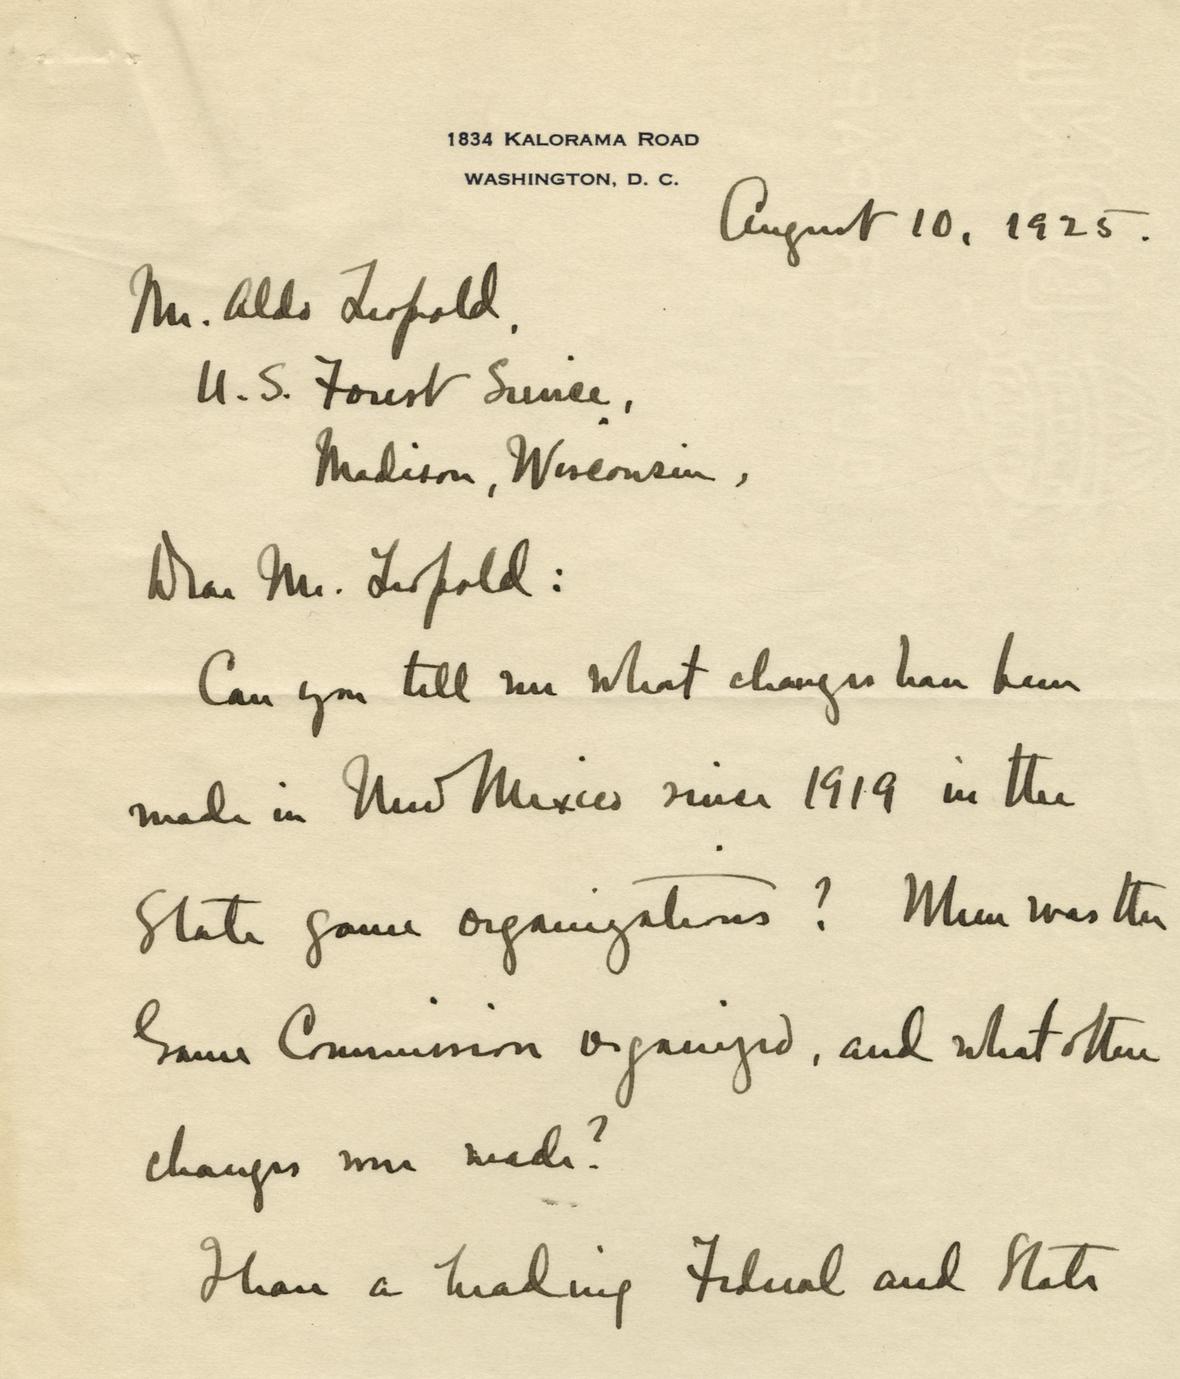 1834 KALORAMA ROAD
WASHINGTON, D. C.
August 10, 1925.
Mr. Aldo Leopold,
U.S. Forest Service,
Madison, Wisconsin,
Dear Mr. Leopold:
Can you tell me what changes have been
made in New Mexico since 1919 in the
State game organizations? When was the
Game Commission organized, and what other
changes were made?
I have a heading Federal and State